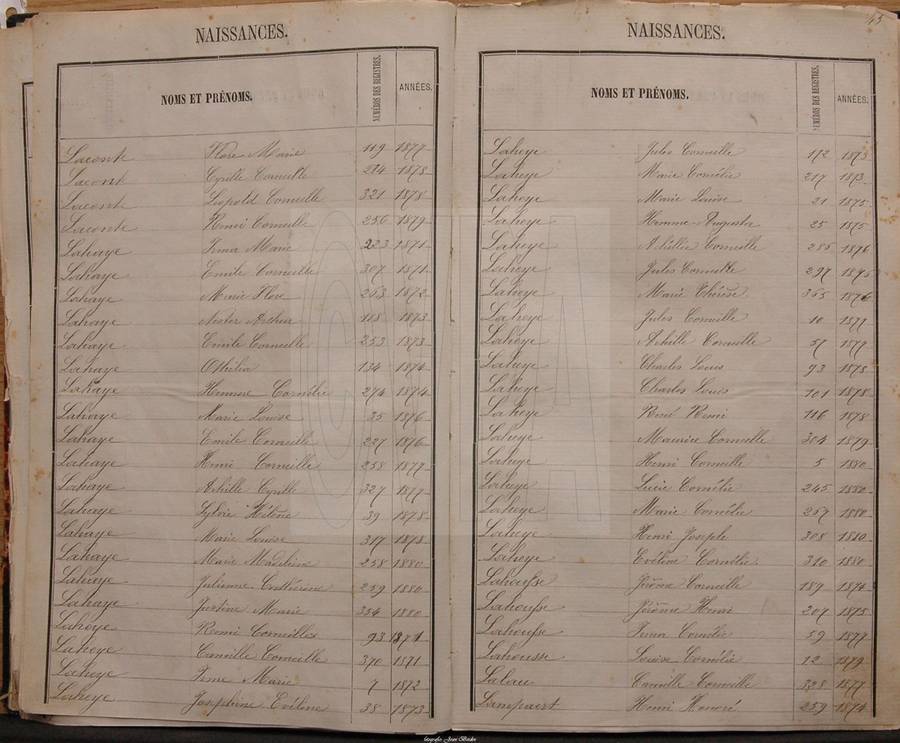 45
NAISSANCES.
NOMS ET PRÉNOMS. NUMÉROS DES REGISTRES. ANNÉES.
Laconte Flore Marie 119 1877
Laconte Cyrille Corneille 284 1878
Laconte Léopold Corneille 321 1878
Laconte Remi Corneille 256 1879
Lahaye Irma Marie 223 1871
Lahaye Emile Corneille 307 1871
Lahaye Marie Flore 263 1872
Lahaye Nestor Arthur 118 1873
Lahaye Emile Corneille 253 1873
Lahaye Othilia 134 1874
Lahaye Hemma Cornélie 274 1874
Lahaye Marie Louise 35 1876
Lahaye Emile Corneille 227 1876
Lahaye Henri Corneille 258 1877
Lahaye Achille Cyrille 327 1877
Lahaye Sylvie Hélène 39 1878
Lahaye Marie Louise 317 1878
Lahaye Marie Madeleine 258 1880
Lahaye Julienne 289 1880
Lahaye Justine Marie 354 1880
Laheye Remi Corneille 93 1871
Laheye Camille Corneille 370 1871
Laheye Irma Marie 7 1872
Laheye Joséphine Evéline 38 1873
NAISSANCES.
NOMS ET PRÉNOMS. NUMÉROS DES REGISTRES. ANNÉES.
Laheye Jules Corneille 172 1873
Laheye Marie Cornélie 217 1873
Laheye Marie Louise 21 1875
Laheye Hemma Augusta 25 1875
Laheye Achille Corneille 285 1876
Laheye Jules Corneille 297 1875
Laheye Marie Thérèse 355 1876
Laheye Jules Corneille 10 1877
Laheye Achille Corneille 57 1877
Laheye Charles Louis 93 1878
Laheye Charles Louis 101 1878
Laheye René Remi 116 1878
Laheye Maurice Corneille 304 1879
Laheye Henri Corneille 5 1880
Laheye Lucie Cornélie 245 1880
Laheye Marie Cornélie 257 1880
Laheye Henri Joseph 308 1880
Laheye Evéline Cornélie 310 1880
Lahousse Jérôme Corneille 189 1874
Lahousse Jérôme Henri 207 1875
Lahousse Irma Cornélie 59 1877
Lahousse Louise Cornélie 12 1879
Lalau Camille Corneille 328 1877
Lampaert Henri Honoré 259 1874
fotografie Jean Baeke